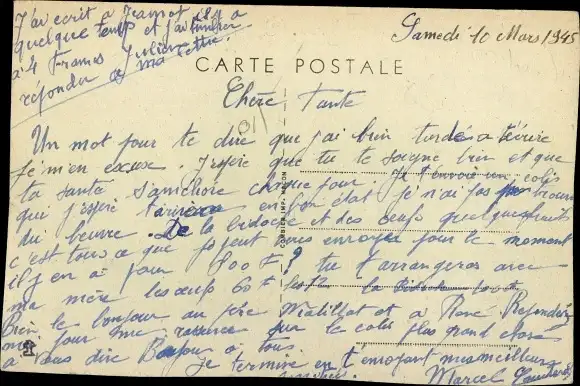 J'ai ecrit a Jeannot il y a
quelque temp et j'ai timbrer
a 4 Francs
repondu a ma lettre.
Samedi 10 Mars 1945
CARTE POSTALE
Chère Tante
Un mot pour te dire que j'ai bien tardés a t'écrire
je m'en excuse. J'espère que tu te soigne bien et que
ta santé s'améliore chaque jour. Je t'envoie un colis
qui j'espère en bon état je n'ai pas trouver
du beurre. De la bidoche et des oeufs quelques
c'est tous ce que je peut vous envoyer pour le moment
il y en a pour 800 F tu t'arrangeras avec
ma mère les oeufs 60 F
Bien le bonjour au père Matillot et a René. Repondez
moi pour sur le colis plus grand chose
a vous dire Bonjour a tous.
Je termine en t'envoyant mes meilleurs
Marcel